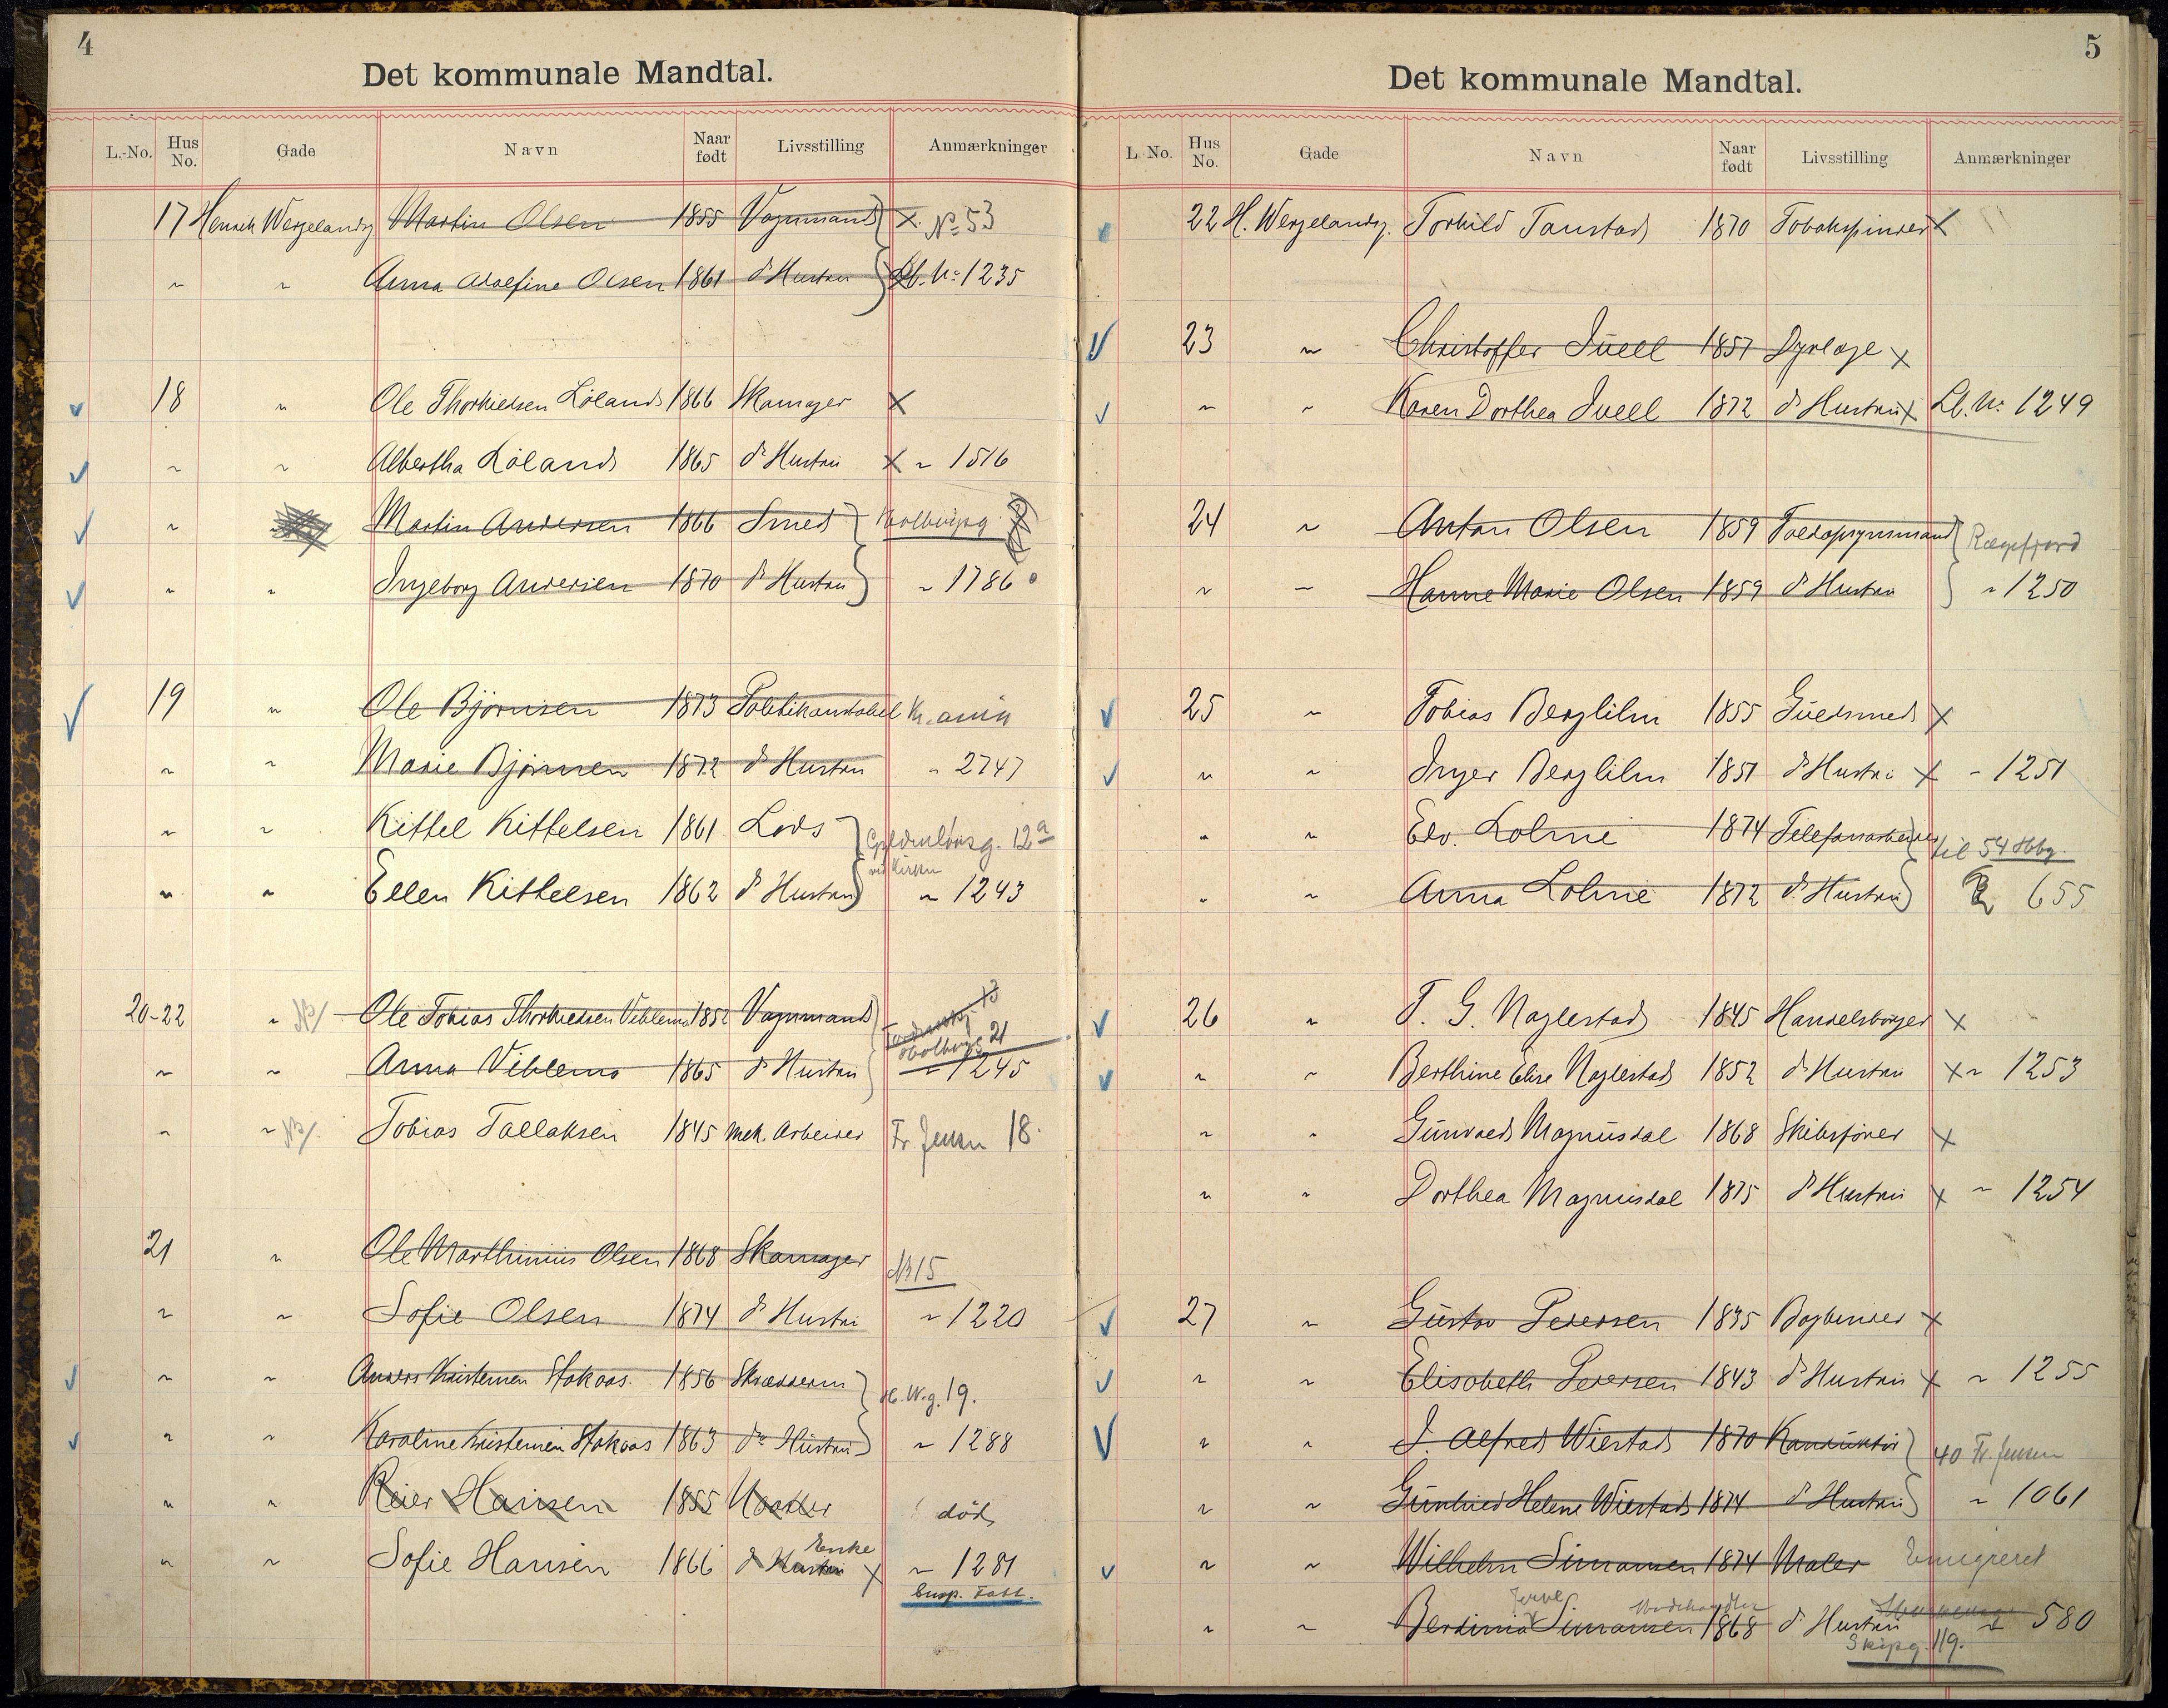 4
Det kommunale Mandtal.
L.-No. Hus No. Gade Navn Naar født Livsstilling Anmærkninger
17 Henrik Wergelandsg Martin Olsen 1855 Vognmand X. No 53
" " Anna Adolfine Olsen 1861 ds Hustru Lb. No 1235
18 " Ole Thorkildsen Löland 1866 Skomager X
" " Albertha Löland 1865 ds Hustru X " 1516
" Martin Andersen 1866 Smed Holbergsg.
" " Ingeborg Andersen 1870 ds Hustru " 1786
19 " Ole Björnsen 1873 Politikonstabel
" " Marie Björnsen 1872 ds Hustru " 2747
" " Kittel Kittelsen 1861 Lods Gyldenløvesg. 12a
ved Kirken
" " Ellen Kittelsen 1862 ds Hustru " 1243
20-22 " Ole Tobias Thorkildsen Vehlemo 1852 Vognmand 13
Holbergs 21
" " Anna Vehlemo 1865 ds Hustru " 1245
" " Tobias Tallaksen 1845 Mek. Arbeider Fr. Jensen 18.
21 " Ole Marthinius Olsen 1868 Skomager No 15
" " Sofie Olsen 1874 ds Hustru " 1220
" " Anders Kristensen Stokaas. 1856 Skrædderm H.W.g. 19.
" " Karoline Kristensen Stokaas 1863 ds Hustru " 1288
" " Reier Hansen 1855 død
" " Sofie Hansen 1866 ds Hustru Enke X " 1281
Ensp. Fatt.
5
Det kommunale Mandtal.
L. No. Hus No. Gade Navn Naar født Livsstilling Anmærkninger
22 H. Wergelandsg. Torkild Taustad 1870 Tobakspinder X
23 " Christoffer Juell 1857 Dyrlæge X
" " Karen Dorthea Juell 1872 ds Hustru X Lb. No 1249
24 " Anton Olsen 1859 Toldopsynsmand Rægefjord
" " Hanne Marie Olsen 1859 ds Hustru " 1250
25 " Tobias Berglihn 1855 Guldsmed X
" " Inger Berglihn 1851 ds Hustru X " 1251
" " Edv. Lohne 1874 Telefonarbeider til 54 Hbg.
" " Anna Lohne 1872 ds Hustru 655
26 " T. G. Naglestad 1845 Handelsborger X
" " Berthine Elise Naglestad 1852 ds Hustru X " 1253
" " Gunvald Magnusdal 1868 Skibsfører X
" " Dorthea Magnusdal 1875 ds Hustru X " 1254
27 " Gustav Pedersen 1835 Bogbinder X
" " Elisabeth Pedersen 1843 ds Hustru X " 1255
" " J. Alfred Wiestad 1870 Konduktör 40 Fr. Jensen
" " Gunhild Helene Wiestad 1874 ds Hustru " 1061
" " Wilhelm Simonsen 1874 Maler Emigreret
" " Berdinia Simonsen 1868 ds Hustru " 580
Modehandler
Skipg. 119.